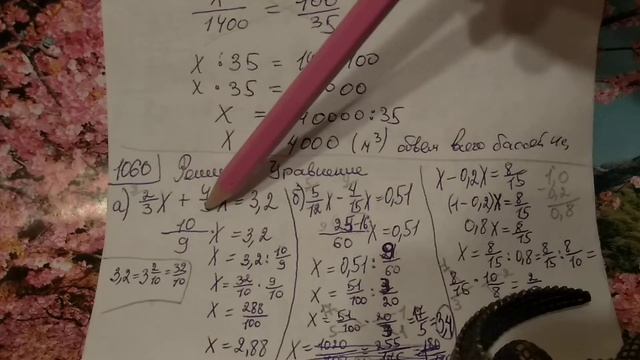 1400 35
X : 35 =
X · 35 =
X = 0000 : 35
X 4000 (м³) объем всего
1060 Уравнение
а) 2/3 X + 4 X = 3,2
10/9 X = 3,2
X = 3,2 : 10/9
3,2 = 3 2/10 = 32/10
X = 32/10 · 9/10
X = 288/100
X = 2,88
б) 5/12 X - 4/15 X = 0,51
25-16/60 X = 0,51
X = 0,51 : 9/60
X = 51/100 : 3/20
X = 51/100 · 20/3 = 17/5 = 3,4
X = 1020 = 255
X - 0,2X = 8/15
(1 - 0,2)X = 8/15
0,8X = 8/15
X = 8/15 : 0,8 = 8/15 : 8/10 =
8/15 · 10/8 = 2
1,0
- 0,2
0,8